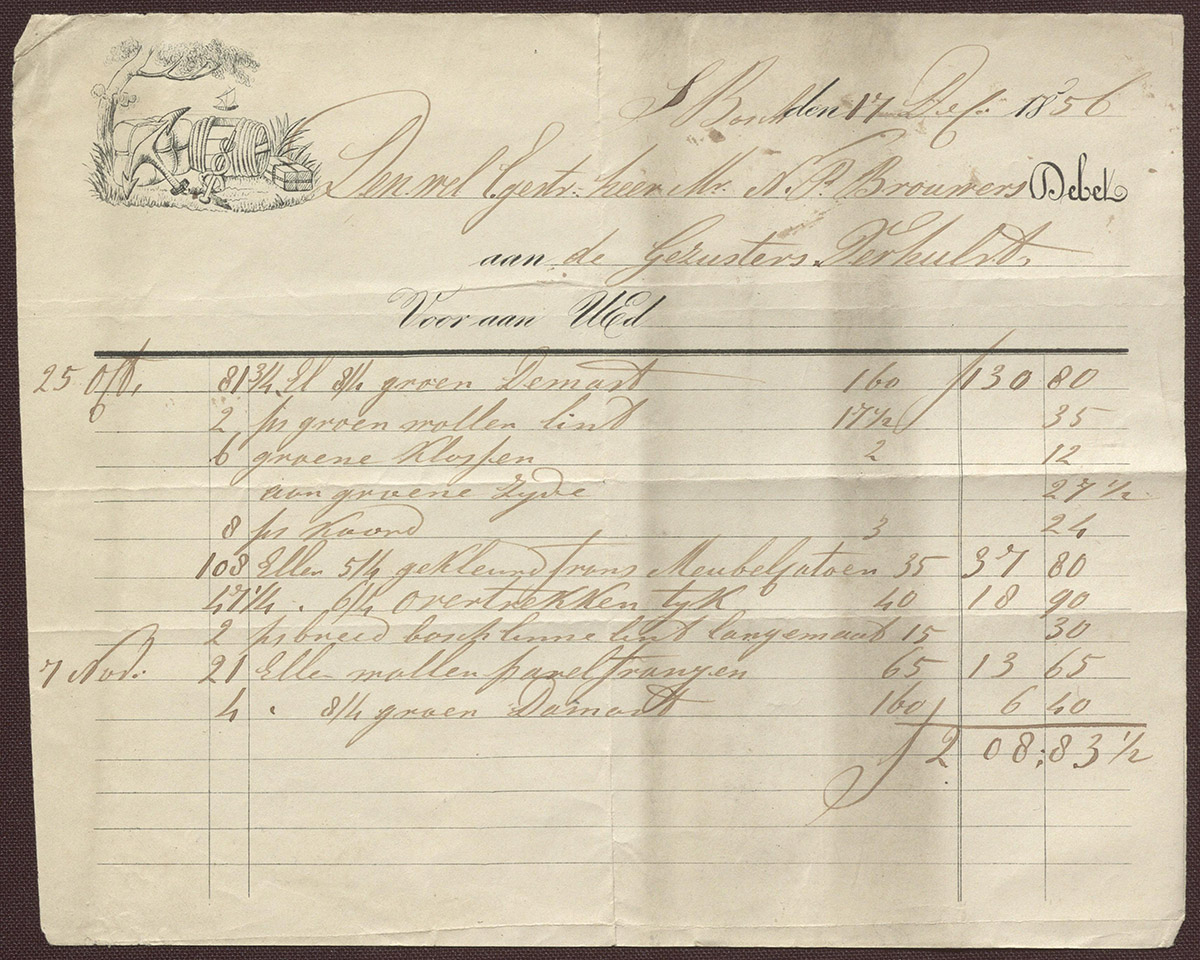 S Bosch den 17 Dec: 1856
Den wel Egestr: heer Mr. N. P. Brouwers Debet
aan de Gezusters Verhulst,
Voor aan UEd
25 Oct, 81 3/4 El 8/4 groen Demast 160 f 130 80
2 ps groen wollen lint 17 1/2 35
6 groene Klossen 2 12
aan groene Zyde 27 1/2
8 ps Koord 3 24
108 Ellen 5/4 gekleurd frans Meubelsatoen 35 37 80
47 1/4 . 6/4 overtrekken tyk 40 18 90
2 ps breed bosch linne lint langemaat 15 30
7 Nov: 21 Ellen wollen parelfrangen 65 13 65
4 . 8/4 groen Damast 160 6 40
f 208:83 1/2